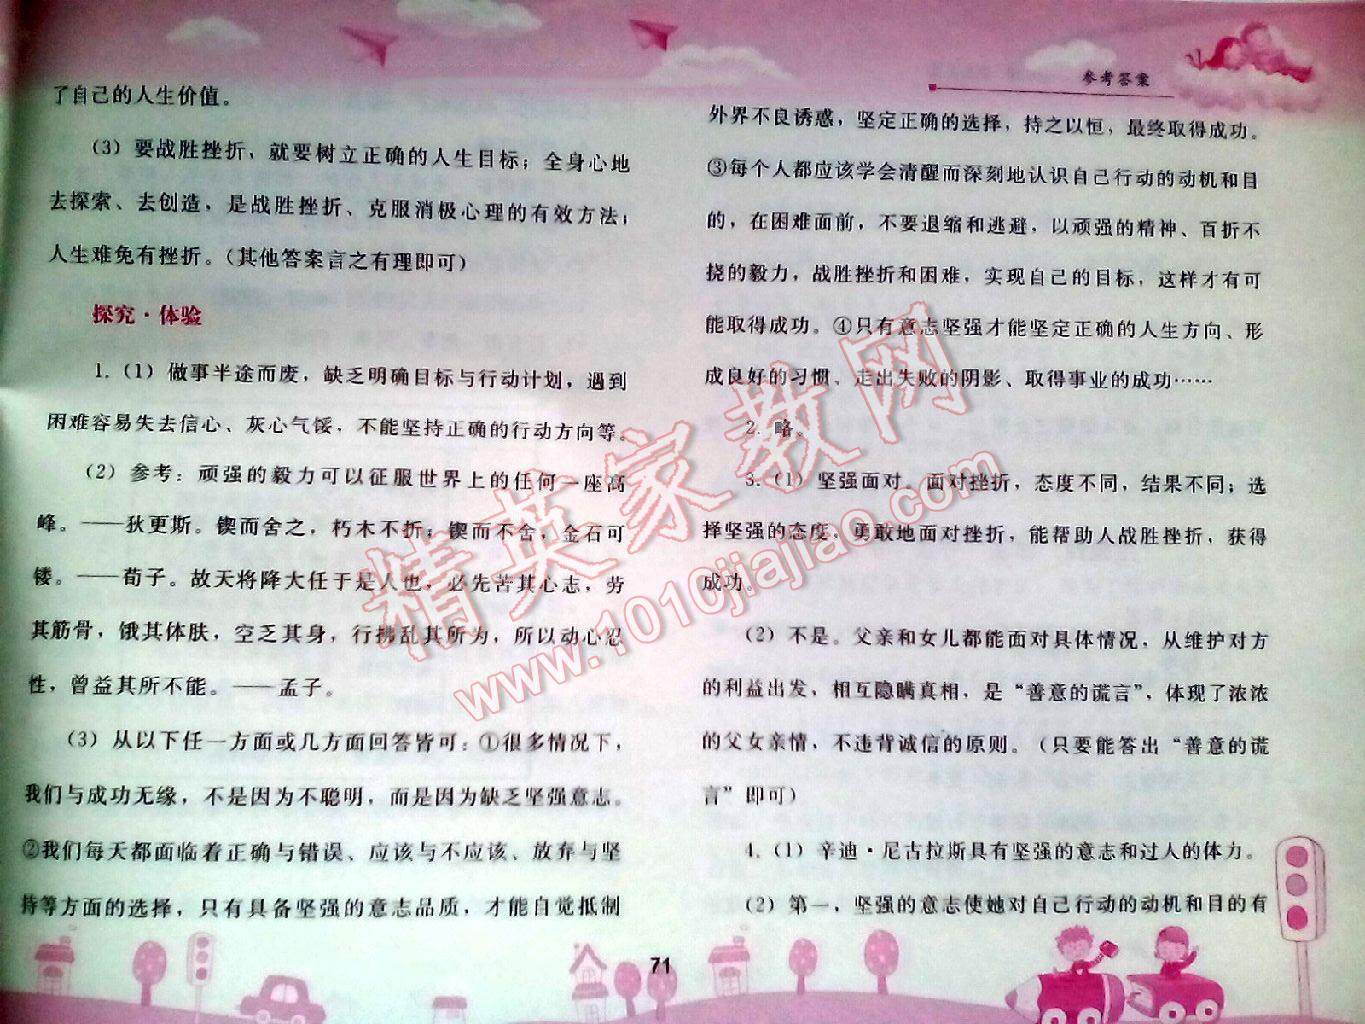 参考答案
了自己的人生价值。
（3）要战胜挫折，就要树立正确的人生目标；全身心地
去探索、去创造，是战胜挫折、克服消极心理的有效方法；
人生难免有挫折。（其他答案言之有理即可）
探究·体验
1.（1）做事半途而废，缺乏明确目标与行动计划，遇到
困难容易失去信心、灰心气馁，不能坚持正确的行动方向等。
（2）参考：顽强的毅力可以征服世界上的任何一座高
峰。——狄更斯。锲而舍之，朽木不折；锲而不舍，金石可
镂。——荀子。故天将降大任于是人也，必先苦其心志，劳
其筋骨，饿其体肤，空乏其身，行拂乱其所为，所以动心忍
性，曾益其所不能。——孟子。
（3）从以下任一方面或几方面回答皆可：①很多情况下，
我们与成功无缘，不是因为不聪明，而是因为缺乏坚强意志。
②我们每天都面临着正确与错误、应该与不应该、放弃与坚
持等方面的选择，只有具备坚强的意志品质，才能自觉抵制
外界不良诱惑，坚定正确的选择，持之以恒，最终取得成功。
③每个人都应该学会清醒而深刻地认识自己行动的动机和目
的，在困难面前，不要退缩和逃避，以顽强的精神、百折不
挠的毅力，战胜挫折和困难，实现自己的目标，这样才有可
能取得成功。④只有意志坚强才能坚定正确的人生方向、形
成良好的习惯、走出失败的阴影、取得事业的成功……
2. 略。
3.（1）坚强面对。面对挫折，态度不同，结果不同；选
择坚强的态度，勇敢地面对挫折，能帮助人战胜挫折，获得
成功。
（2）不是。父亲和女儿都能面对具体情况，从维护对方
的利益出发，相互隐瞒真相，是“善意的谎言”，体现了浓浓
的父女亲情，不违背诚信的原则。（只要能答出“善意的谎
言”即可）
4.（1）辛迪·尼古拉斯具有坚强的意志和过人的体力。
（2）第一，坚强的意志使她对自己行动的动机和目的有
71
精英家教网
www.1010jiajiao.com